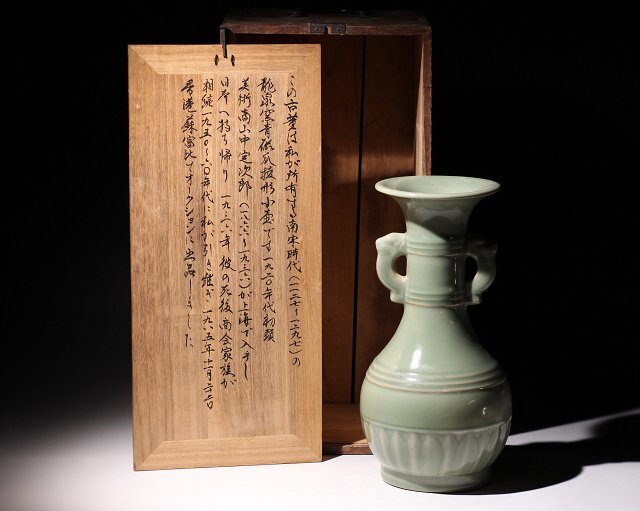 この古董は私が所有する南宋時代(一一二七~一二九七)の
龍泉窯青磁瓜棱形小壷です一九二〇年代初頭
美術商山中定次郎(一八六六~一九三六)が上海で入手し
日本へ持ち帰り 一九三六年 彼の死後 商会家族が
相続一九五〇~六〇年代に私が引き継ぎ 一九六五年十一月二十六日
香港蘇富比でオークションに出品しました